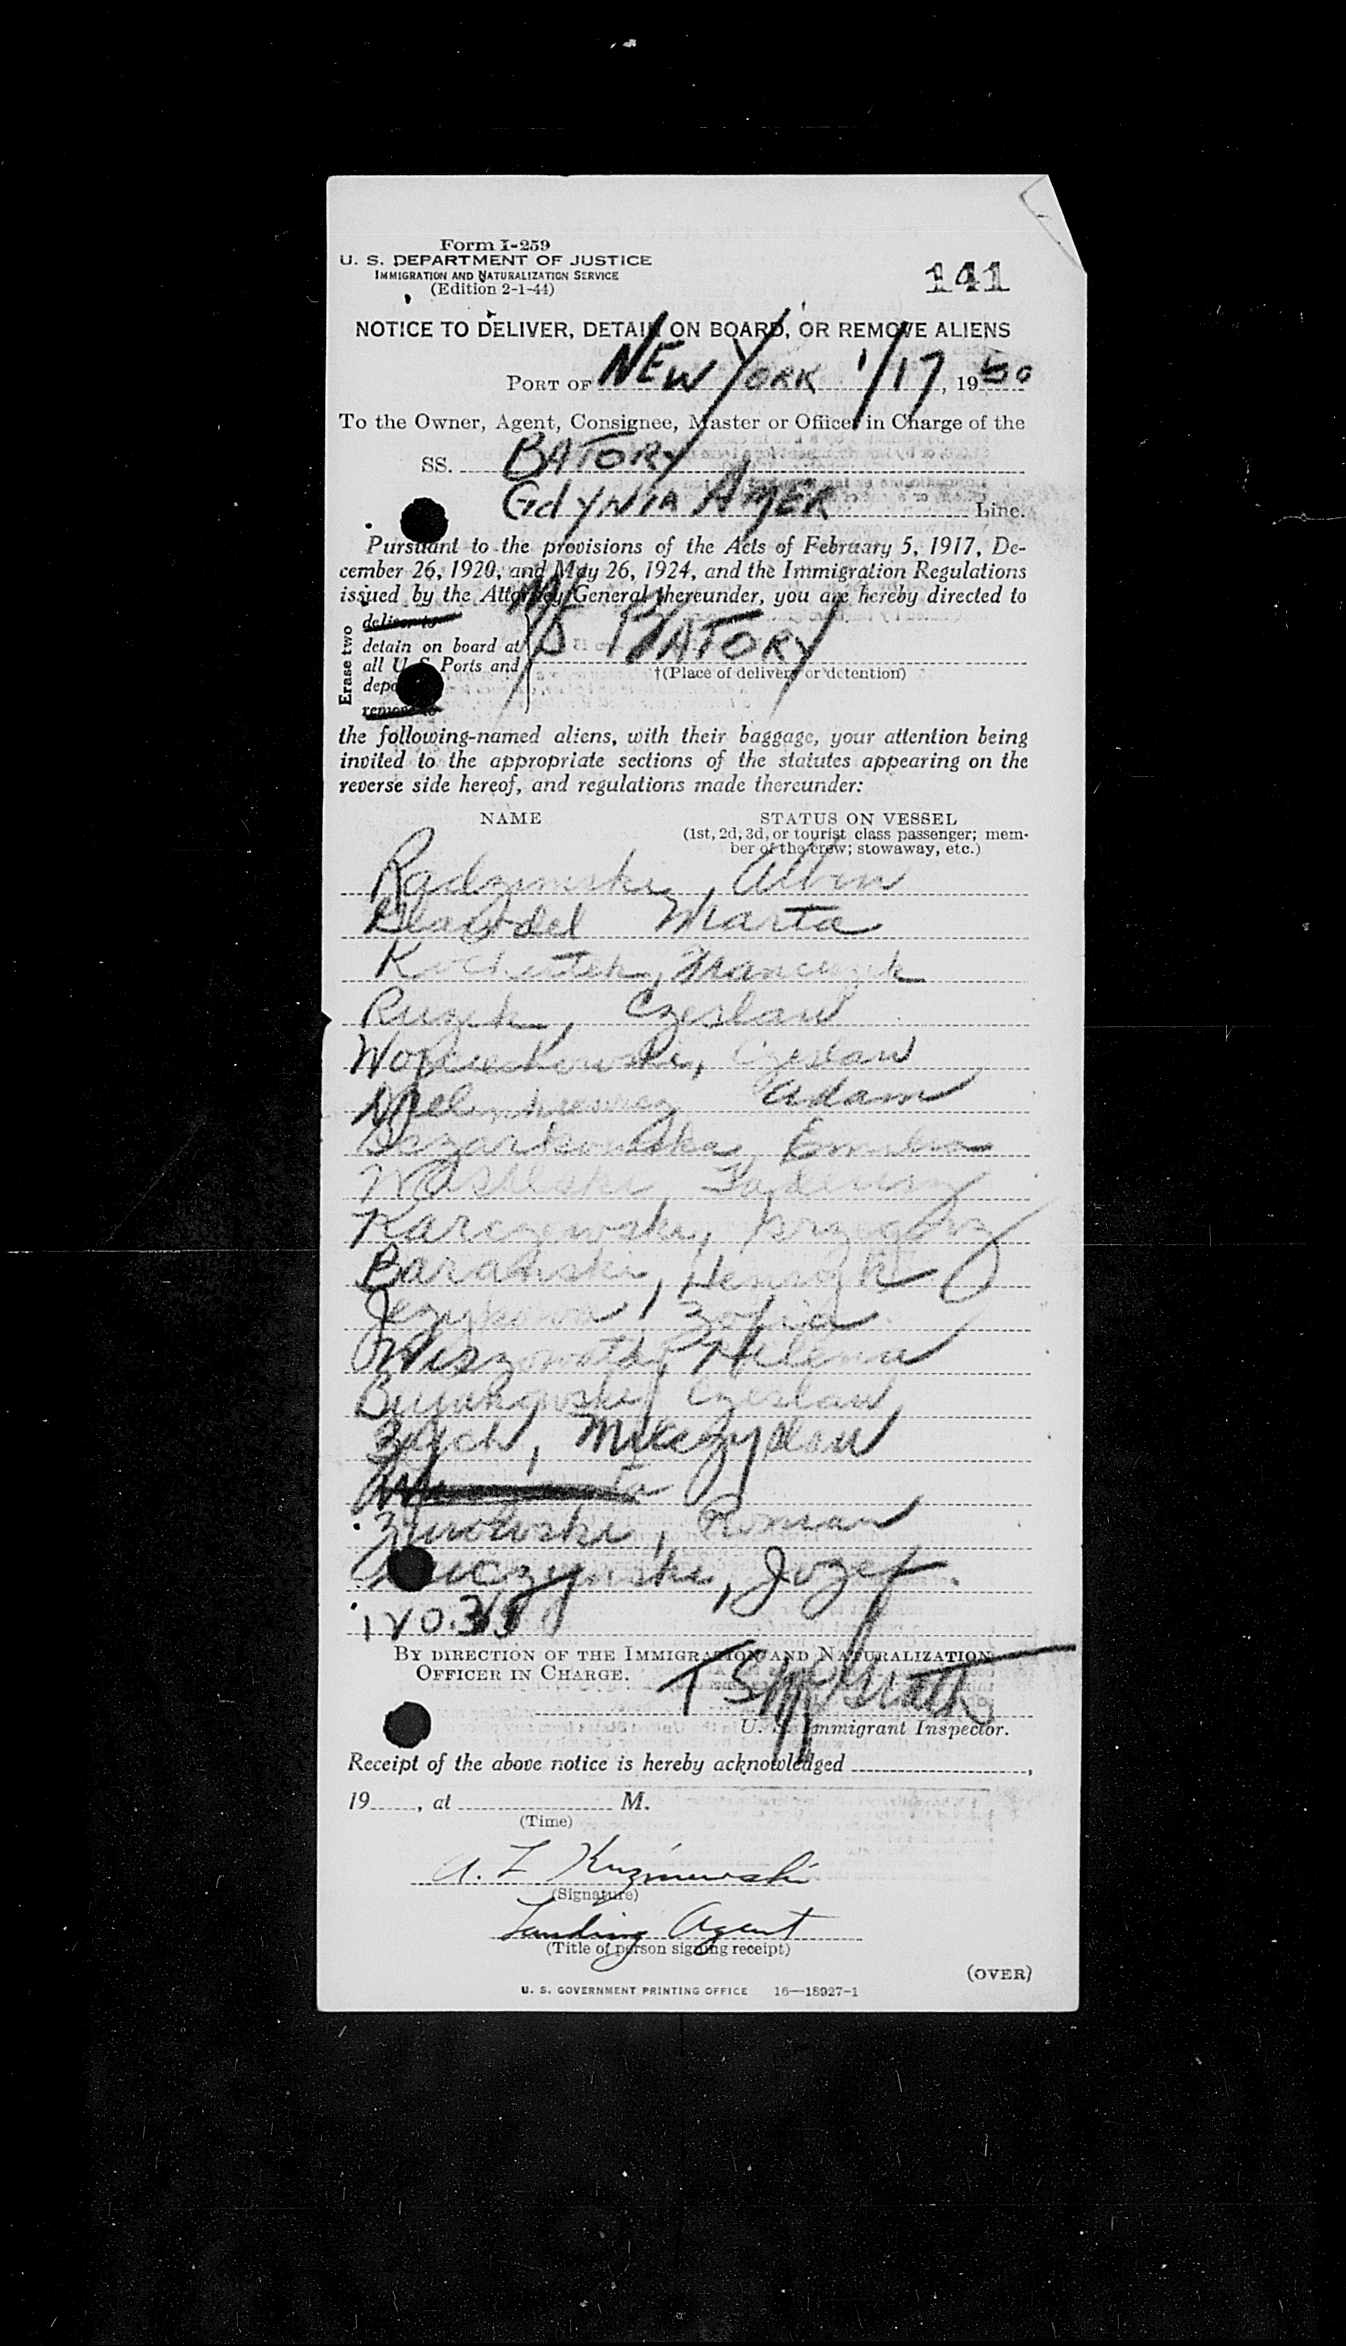 Form I-259
U. S. DEPARTMENT OF JUSTICE
IMMIGRATION AND NATURALIZATION SERVICE
(Edition 2-1-44)
141
NOTICE TO DELIVER, DETAIN ON BOARD, OR REMOVE ALIENS
PORT OF NEW YORK 1/17, 1950
To the Owner, Agent, Consignee, Master or Officer in Charge of the
SS. BATORY
GDYNIA AMER Line.
Pursuant to the provisions of the Acts of February 5, 1917, De-
cember 26, 1920, and May 26, 1924, and the Immigration Regulations
issued by the Attorney General thereunder, you are hereby directed to
Erase two
deliver to
detain on board at
all U. S. Ports and
remove to
M/S BATORY
†(Place of delivery or detention)
the following-named aliens, with their baggage, your attention being
invited to the appropriate sections of the statutes appearing on the
reverse side hereof, and regulations made thereunder:
NAME STATUS ON VESSEL
(1st, 2d, 3d, or tourist class passenger; mem-
ber of the crew; stowaway, etc.)
Radzimski, Albin
Marta
Franciszek
Czeslaw
Wojciechowski, Czeslaw
Adam
Emilia
Tadeusz
Karczewski, Grzegorz
Baranski, Henryk
Zofia
Helena
Czeslaw
Mieczyslaw
Zurowski, Roman
Jozef.
BY DIRECTION OF THE IMMIGRATION AND NATURALIZATION
OFFICER IN CHARGE.
T S McGrath
U. S. Immigrant Inspector.
Receipt of the above notice is hereby acknowledged ,
19 , at M.
(Time)
A. L
(Signature)
Landing Agent
(Title of person signing receipt)
(OVER)
U. S. GOVERNMENT PRINTING OFFICE 16—18927-1